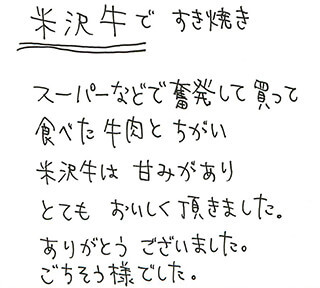 米沢牛で すき焼き
スーパーなどで奮発して買って
食べた牛肉と ちがい
米沢牛は 甘みがあり
とても おいしく頂きました。
ありがとう ございました。
ごちそう様でした。